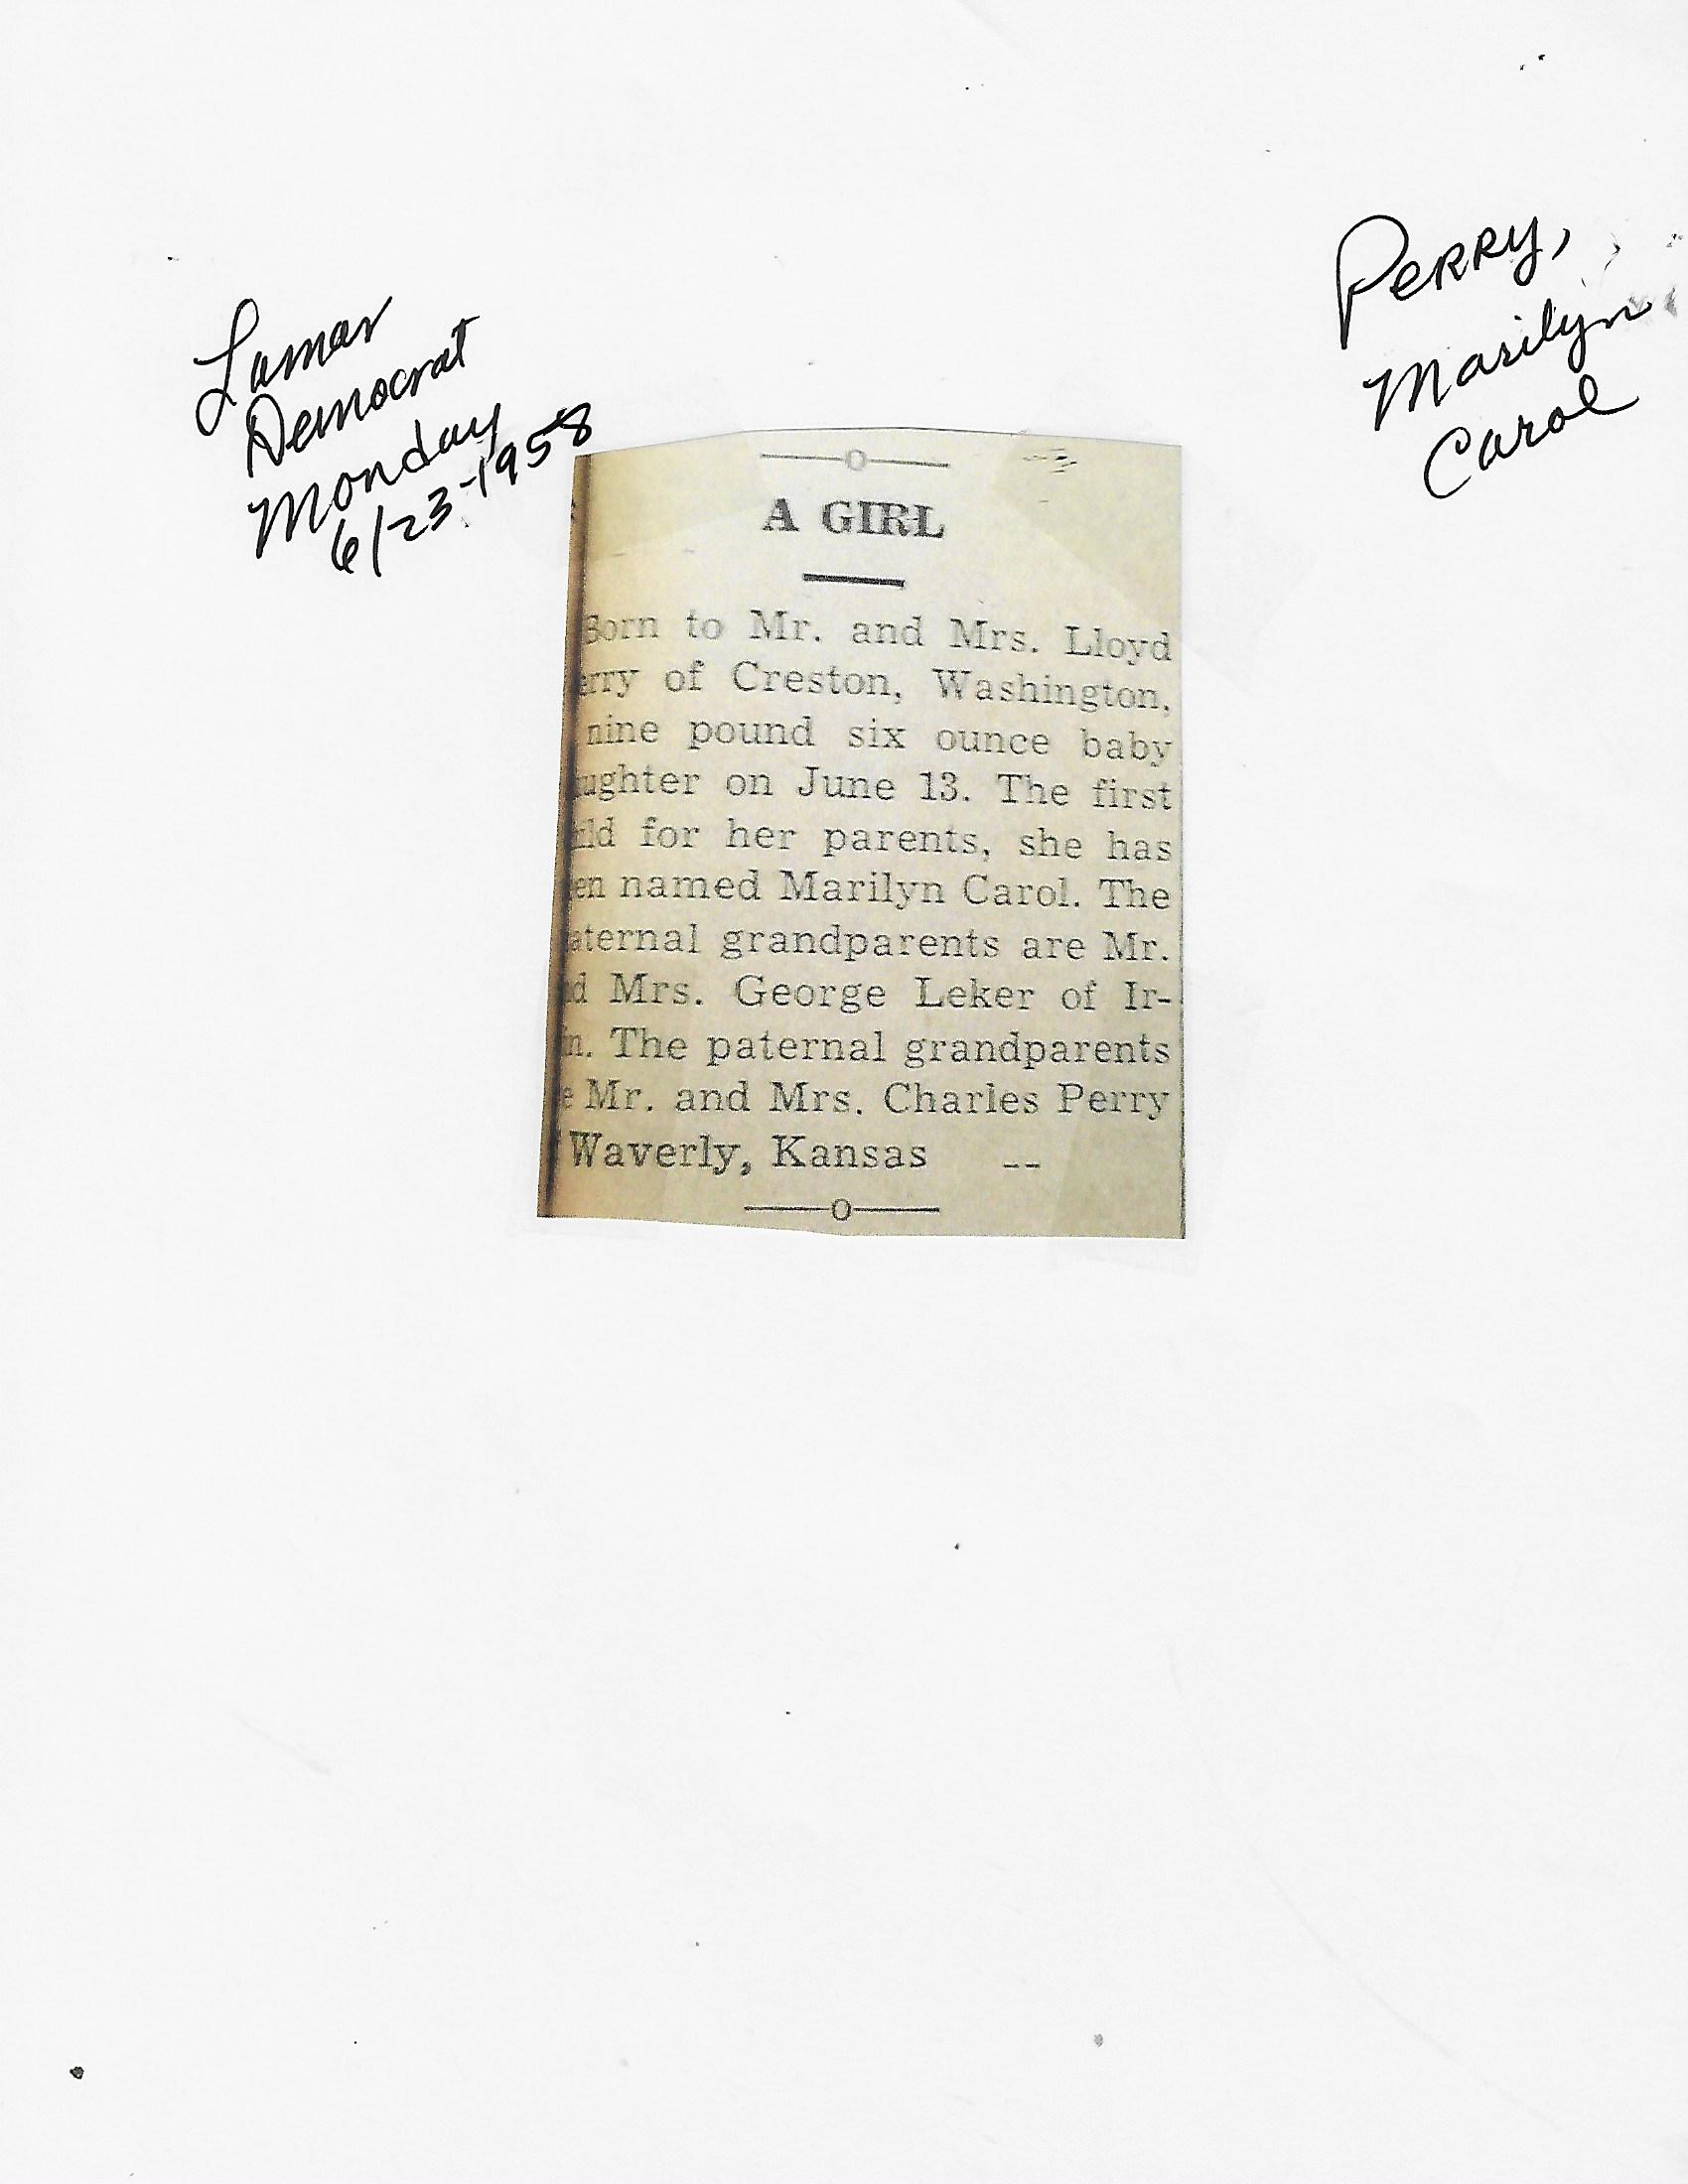 Perry,
Marilyn
Carol
Lamar
Democrat
Monday
6/23-1958
—o—
A GIRL
Born to Mr. and Mrs. Lloyd
erry of Creston, Washington,
nine pound six ounce baby
aughter on June 13. The first
ild for her parents, she has
en named Marilyn Carol. The
aternal grandparents are Mr.
d Mrs. George Leker of Ir-
n. The paternal grandparents
e Mr. and Mrs. Charles Perry
f Waverly, Kansas --
—o—